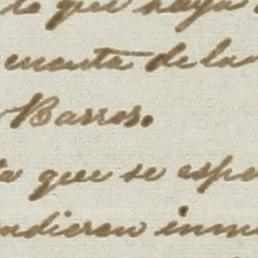 lo que haya
cuenta de la
Barros.
que se espe
ndieren inme